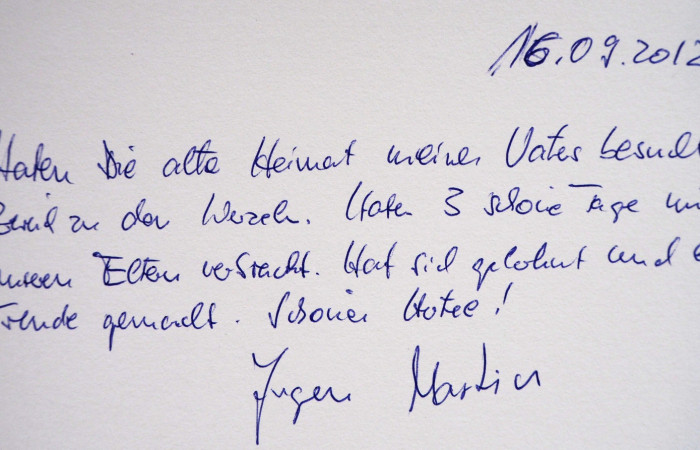 16.09.2012
Haben Die alte Heimat meines Vaters besucht
zu den Wurzeln. Haben 3 schöne Tage mit
unseren Eltern verbracht. Hat sich gelohnt und
Freude gemacht. Schönes Hotel!
Jürgen Martin